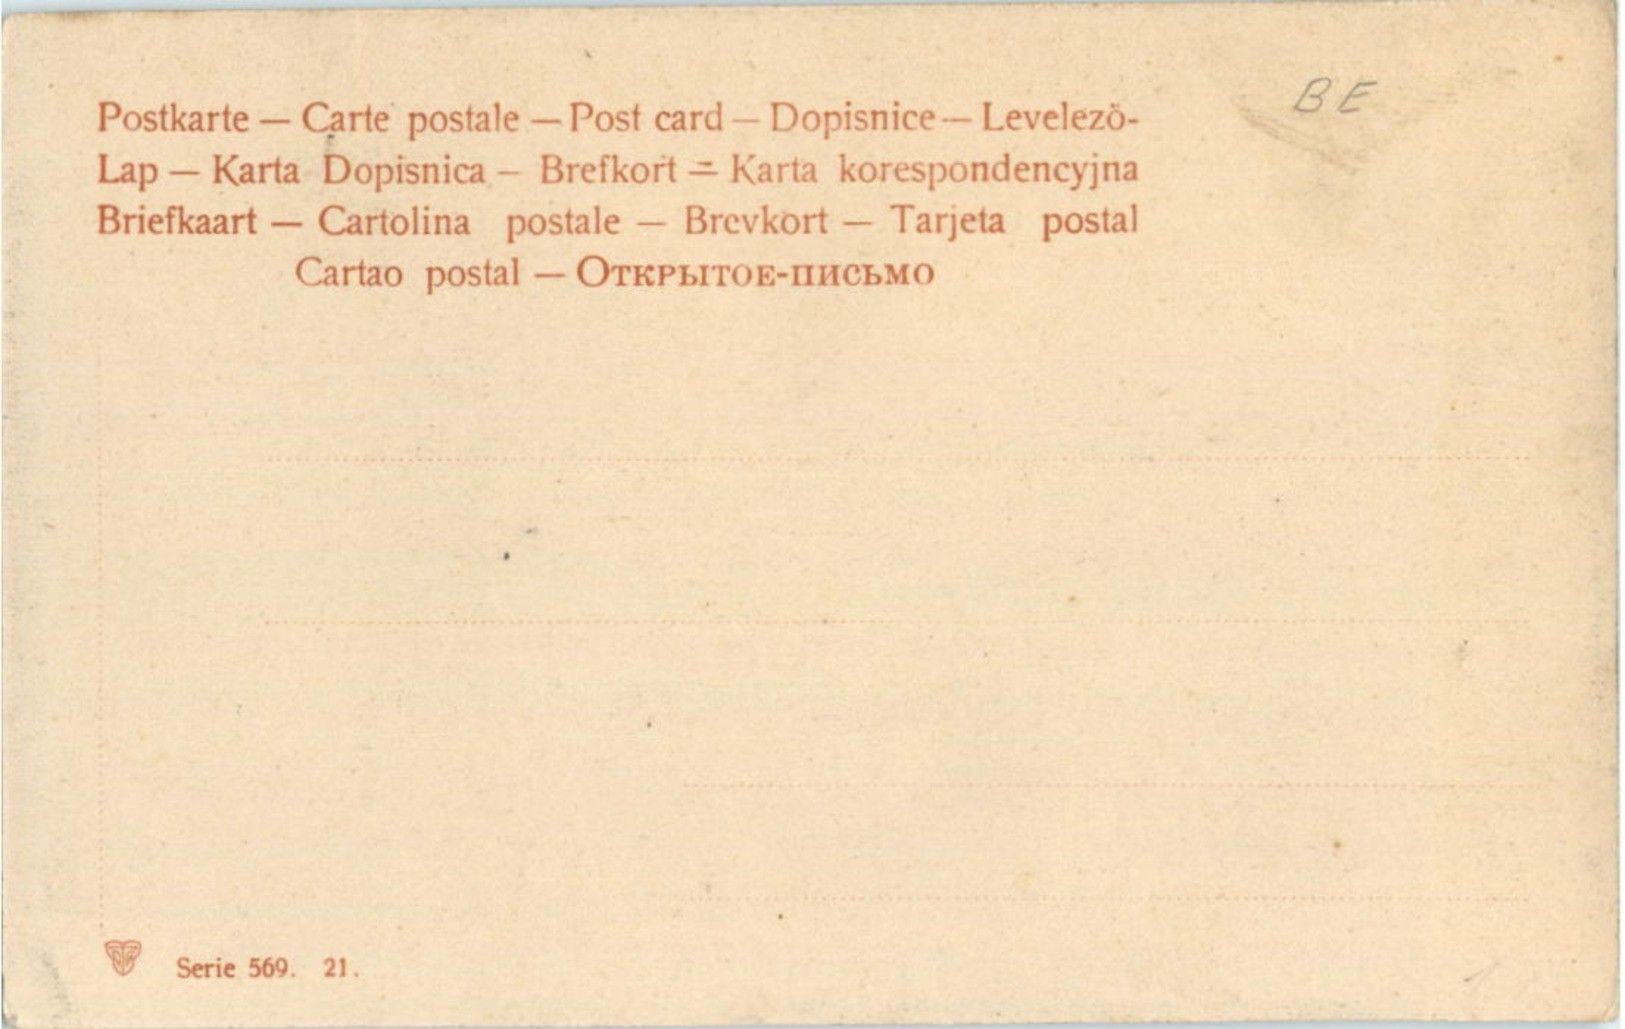 BE
Postkarte — Carte postale — Post card — Dopisnice — Levelezö-
Lap — Karta Dopisnica — Brefkort — Karta korespondencyjna
Briefkaart — Cartolina postale — Brevkort — Tarjeta postal
Cartao postal — Открытое-письмо
Serie 569. 21.